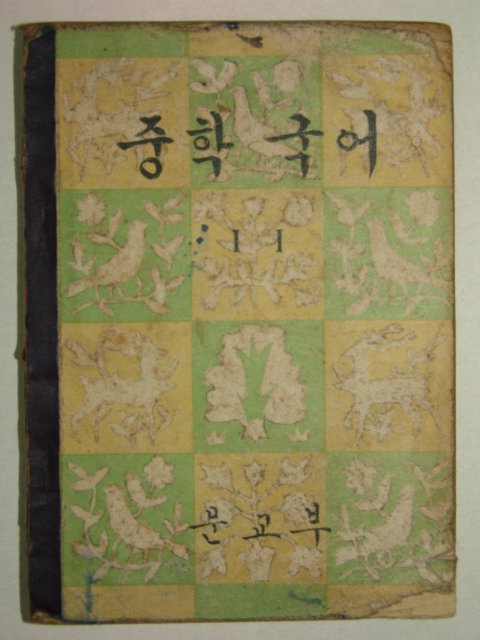 중학 국어
I I
문교부